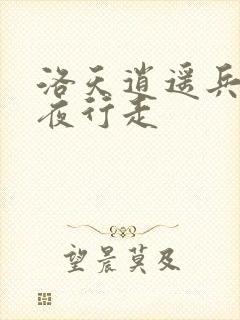 洛天逍遥兵
夜行走
望晨莫及